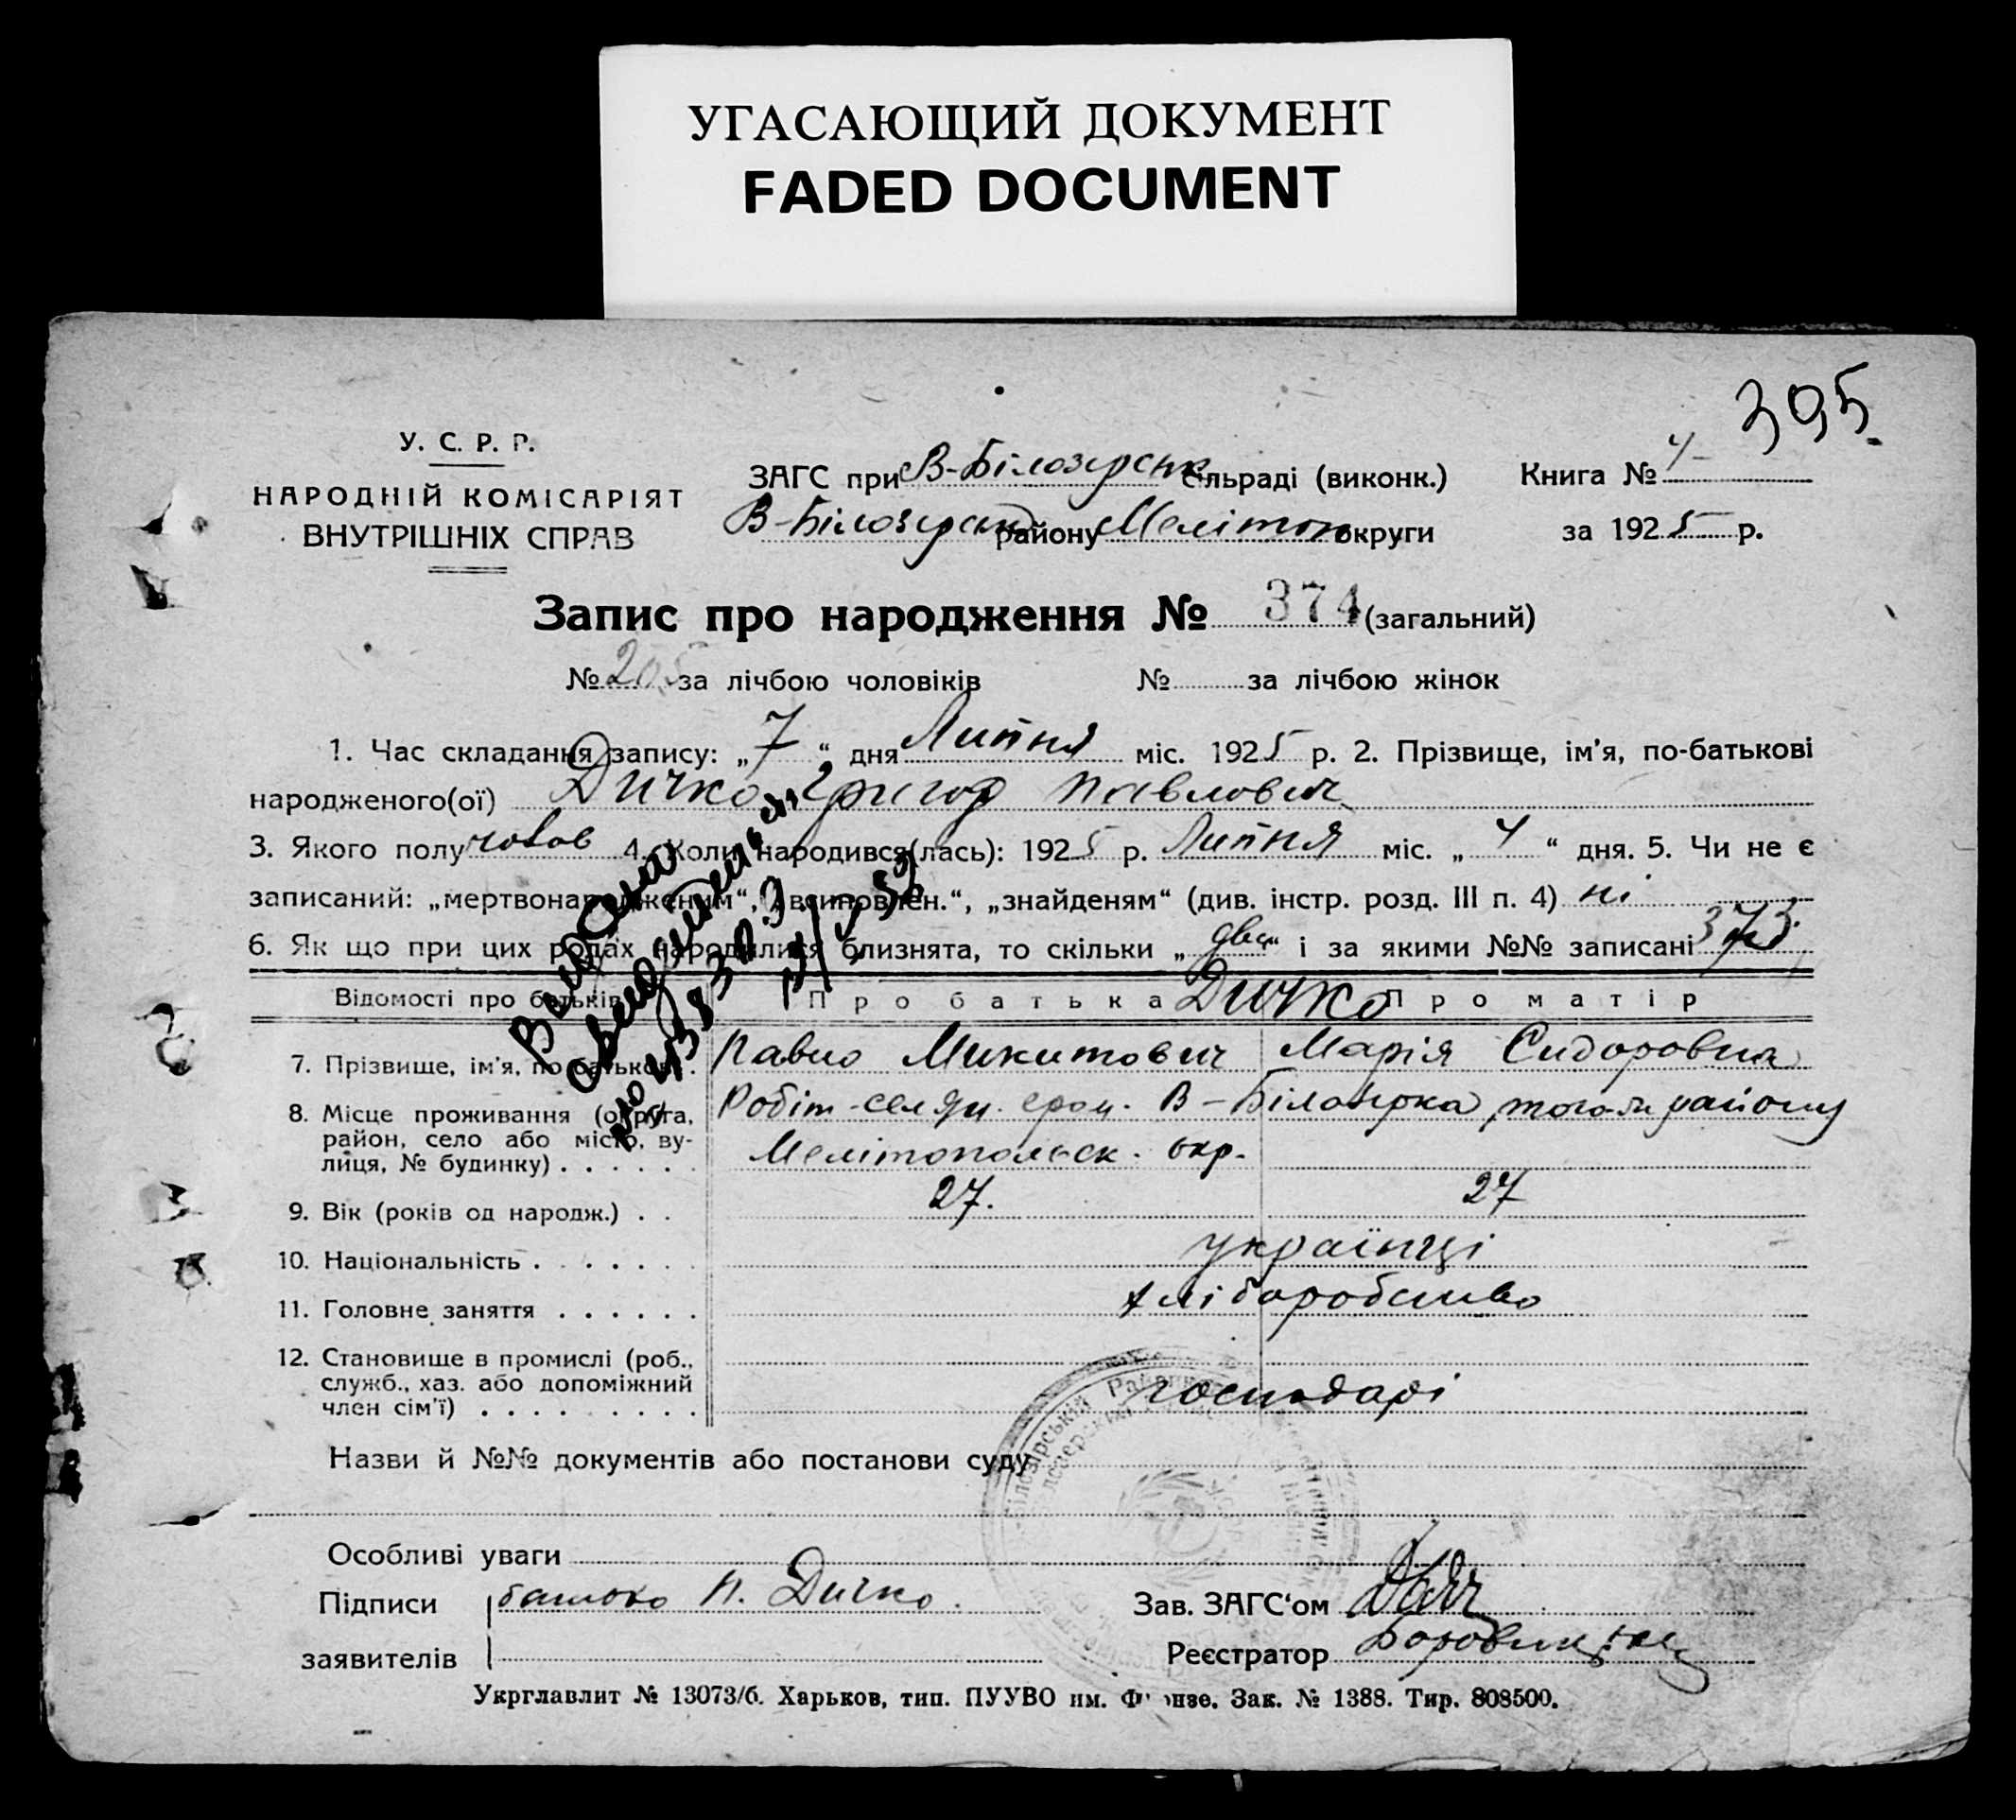 УГАСАЮЩИЙ ДОКУМЕНТ
FADED DOCUMENT
395
У. С. Р. Р.
НАРОДНІЙ КОМІСАРІЯТ
ВНУТРІШНІХ СПРАВ
ЗАГС при В-Білозерськ сільраді (виконк.)
Книга № 4
В-Білозерськ району Мелітоп округи
за 1925 р.
Запис про народження № 374 (загальний)
№ 205 за лічбою чоловіків № за лічбою жінок
1. Час складання запису: „7“ дня Липня міс. 1925 р. 2. Прізвище, ім’я, по-батькові
народженого(ої) Дичко Григор Павлович
3. Якого полу чолов 4. Коли народився(лась): 1925 р. Липня міс. „4“ дня. 5. Чи не є
записаний: „мертвонародженим“, „всиновлен.“, „знайденям“ (див. інстр. розд. III п. 4) ні
6. Як що при цих родах народилися близнята, то скільки „два“ і за якими №№ записані 373
Відомості про батьків Про батька Дичко Про матір
7. Прізвище, ім’я, по батькові . Павло Микитович Марія Сидоровна
8. Місце проживання (округа, район, село або місто, вулиця, № будинку) . . . . . . Робіт-селян. В-Білозірка, того-ж району
Мелітопольск. окр.
9. Вік (років од народж.) . . 27. 27
10. Національність . . . . . . . українці
11. Головне заняття . . . . . . хліборобство
12. Становище в промислі (роб., служб., хаз. або допоміжний член сім’ї) . . . . . . . . . господарі
Назви й №№ документів або постанови суду
Особливі уваги
Підписи батько П. Дичко.
Зав. ЗАГС‘ом
заявителів
Реєстратор
Укрглавлит № 13073/б. Харьков, тип. ПУУВО им. Фрунзе. Зак. № 1388. Тир. 808500.